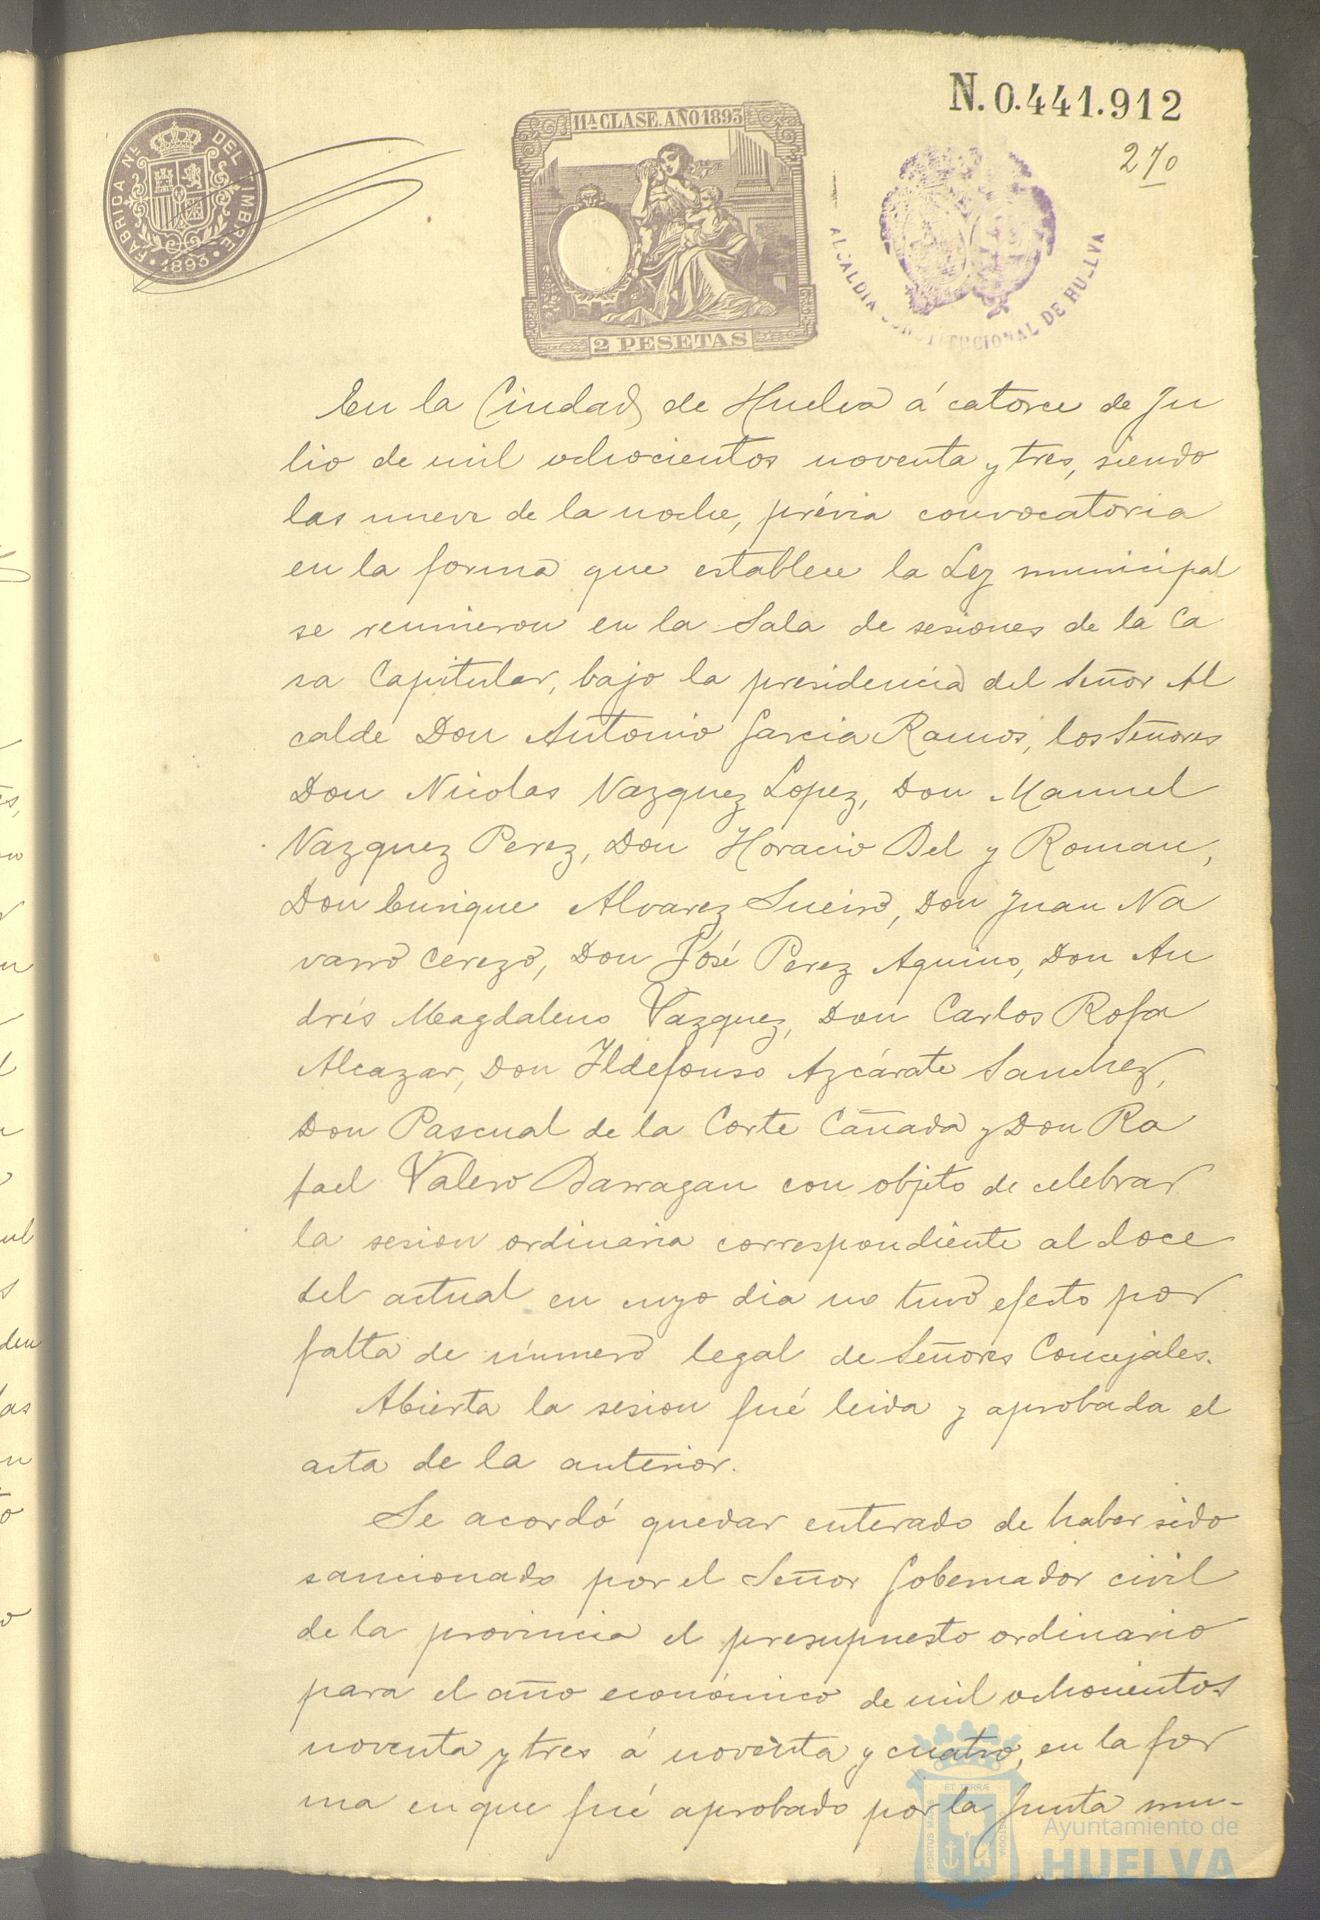 N. 0.441.912
270
FABRICA Nal DEL TIMBRE
1893
11ª CLASE. AÑO 1893
2 PESETAS
ALCALDIA CONSTITUCIONAL DE HUELVA
En la Ciudad de Huelva á catorce de Ju
lio de mil ochocientos noventa y tres, siendo
las nueve de la noche, prévia convocatoria
en la forma que establece la Ley municipal
se reunieron en la Sala de sesiones de la Ca
sa Capitular, bajo la presidencia del Señor Al
calde Don Antonio Garcia Ramos, los Señores
Don Nicolas Vazquez Lopez, Don Manuel
Vazquez Perez, Don Horacio Bel y Roman,
Don Enrique Alvarez Sueiro, Don Juan Na
varro Cerezo, Don José Perez Aquino, Don An
drés Magdaleno Vazquez, Don Carlos Rofa
Alcazar, Don Ildefonso Azcárate Sanchez,
Don Pascual de la Corte Cañada y Don Ra
fael Valero Barragan con objeto de celebrar
la sesion ordinaria correspondiente al doce
del actual en cuyo dia no tuvo efecto por
falta de número legal de Señores Concejales.
Abierta la sesion fué leida y aprobada el
acta de la anterior.
Se acordó quedar enterado de haber sido
sancionado por el Señor Gobernador civil
de la provincia el presupuesto ordinario
para el año económico de mil ochocientos
noventa y tres á noventa y cuatro, en la for
ma en que fué aprobado por la Junta mu-
Ayuntamiento de
HUELVA